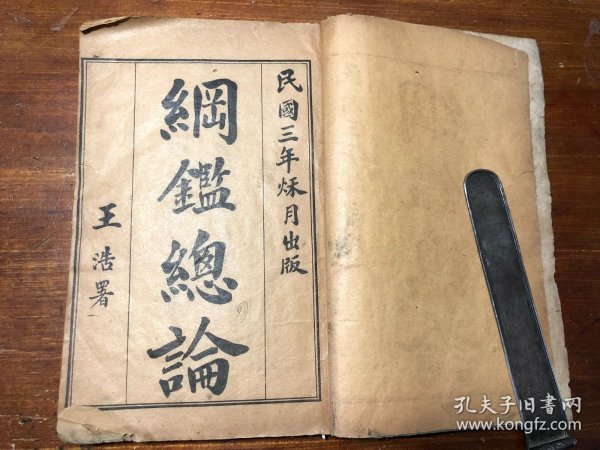 民國三年烁月出版
綱鑑總論
王浩署
孔夫子旧書网
www.kongfz.com